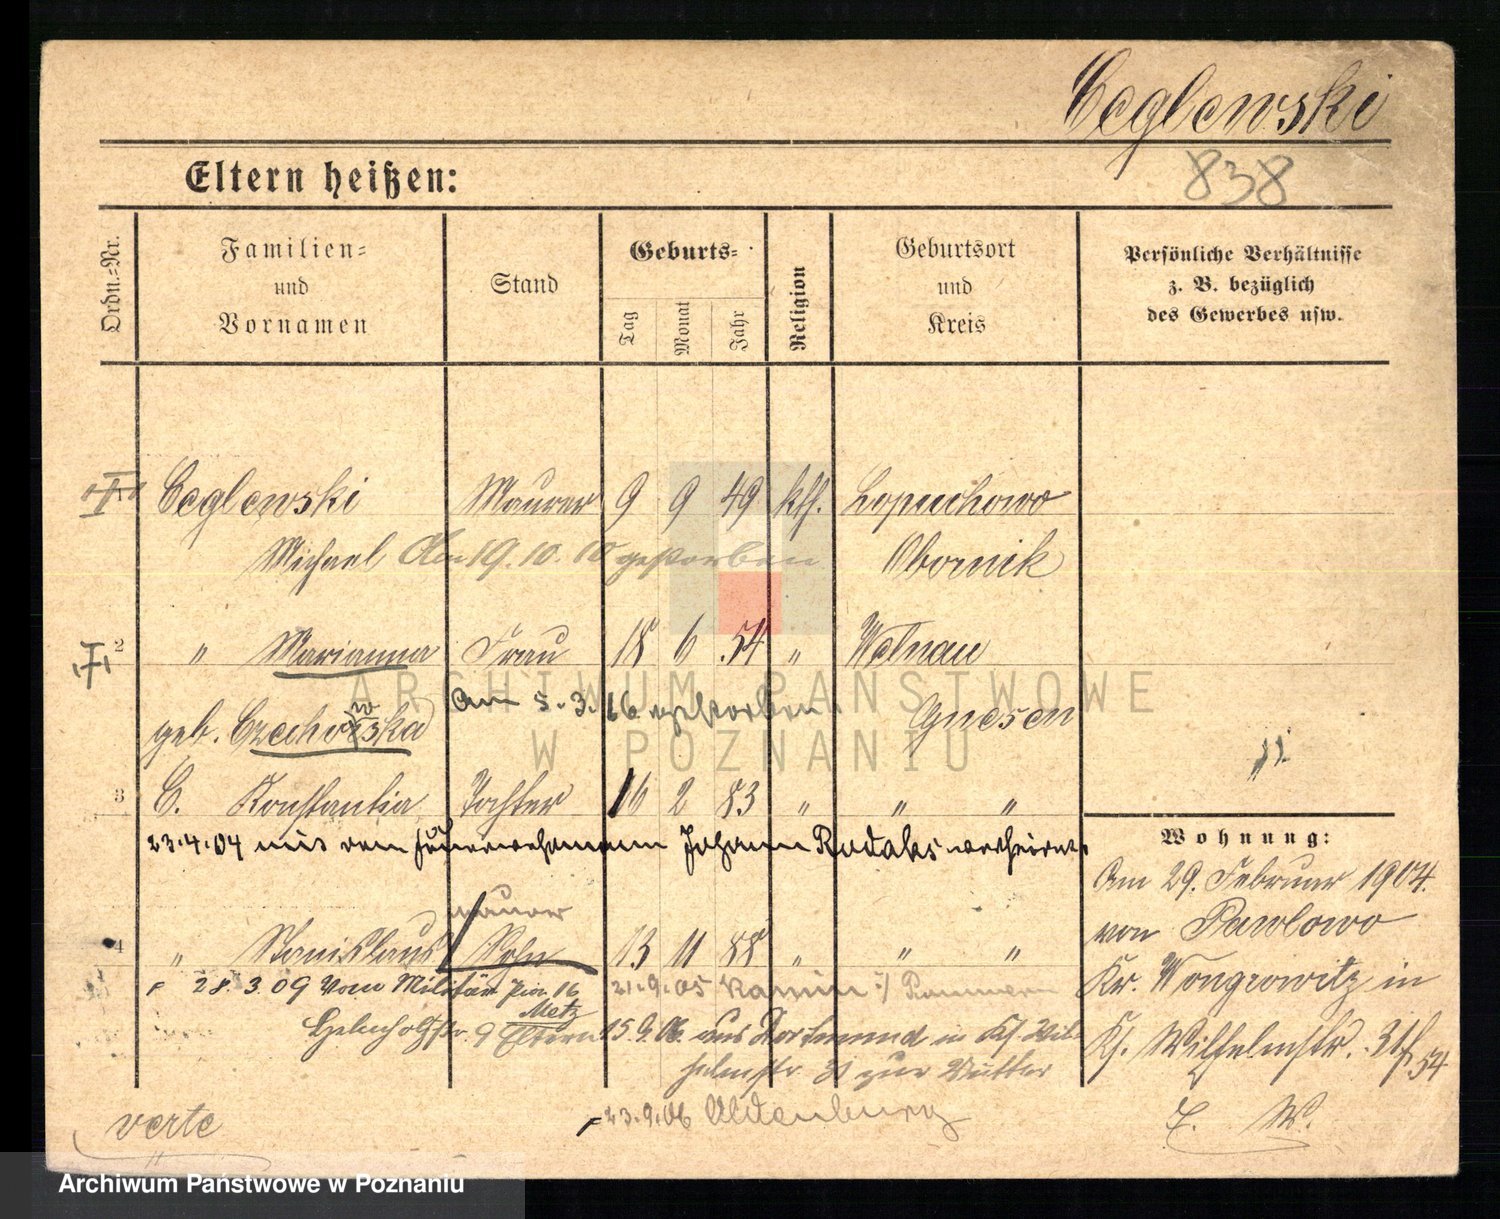 Ceglewski
838
Eltern heißen:
Ordn.=Nr.
Familien=
und
Vornamen
Stand
Geburts=
Tag
Monat
Jahr
Religion
Geburtsort
und
Kreis
Persönliche Verhältnisse
z. B. bezüglich
des Gewerbes usw.
Ceglewski Maurer 9 9 49 kth. Lopuchowo
Michael Am 19.10.10 gestorben Obornik
2 " Marianna Frau 18 6 54 " Welnau
Am 5.3.16 gestorben
geb. Czechowska Gnesen
3 C. Konstantia Tochter 16 2 83 " " "
23.4.04 mit dem Feuerwehrmann Johann verheiratet
Maurer
4 " Stanislaus Sohn 13 11 88 " " "
28.3.09 vom Militär Pion. 16 21.9.05 Kamin
Metz
9 Eltern 15.9.06 aus Dortmund in
zur Mutter
23.9.06 Oldenburg
verte
Wohnung:
Am 29. Februar 1904
von Pawlowo
Kr. Wongrowitz in
Wilhelmstr. 54
ARCHIWUM PAŃSTWOWE
W POZNANIU
Archiwum Państwowe w Poznaniu